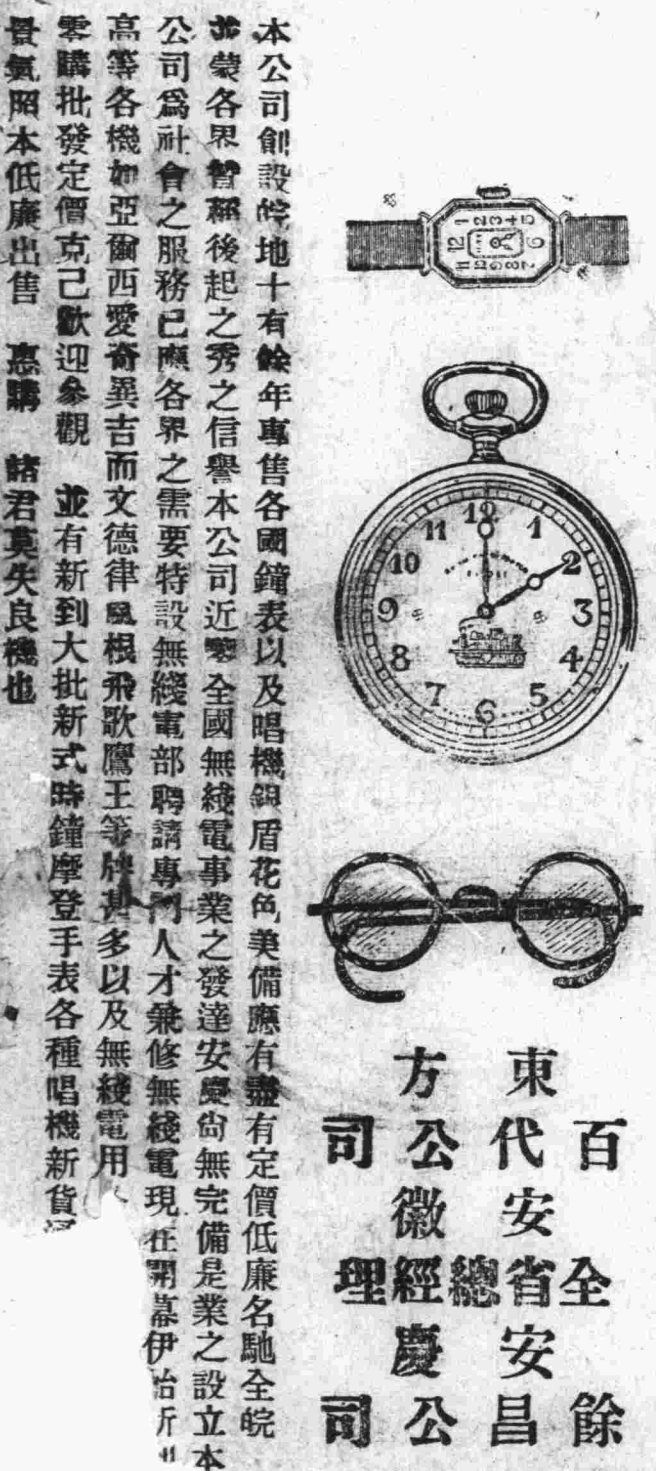 12 1 2 3 4 5 6 7 8 9 10 11
12 1 2 3 4 5 6 7 8 9 10 11
東方
百代公司
安徽
全省總經理
安慶
餘昌公司
本公司創設皖地十有餘年專售各國鐘表以及唱機鋼盾花色美備應有盡有定價低廉名馳全皖
並蒙各界稱後起之秀之信譽本公司近鑒全國無綫電事業之發達安慶尙無完備是業之設立本
公司爲社會之服務已應各界之需要特設無綫電部聘請專門人才兼修無綫電現在開幕伊始所
高等各機如亞爾西愛奇異吉而文德律風根飛歌鷹王等牌甚多以及無綫電用
零購批發定價克己歡迎參觀 並有新到大批新式時鐘摩登手表各種唱機新貨
景氣照本低廉出售 惠購 諸君莫失良機也